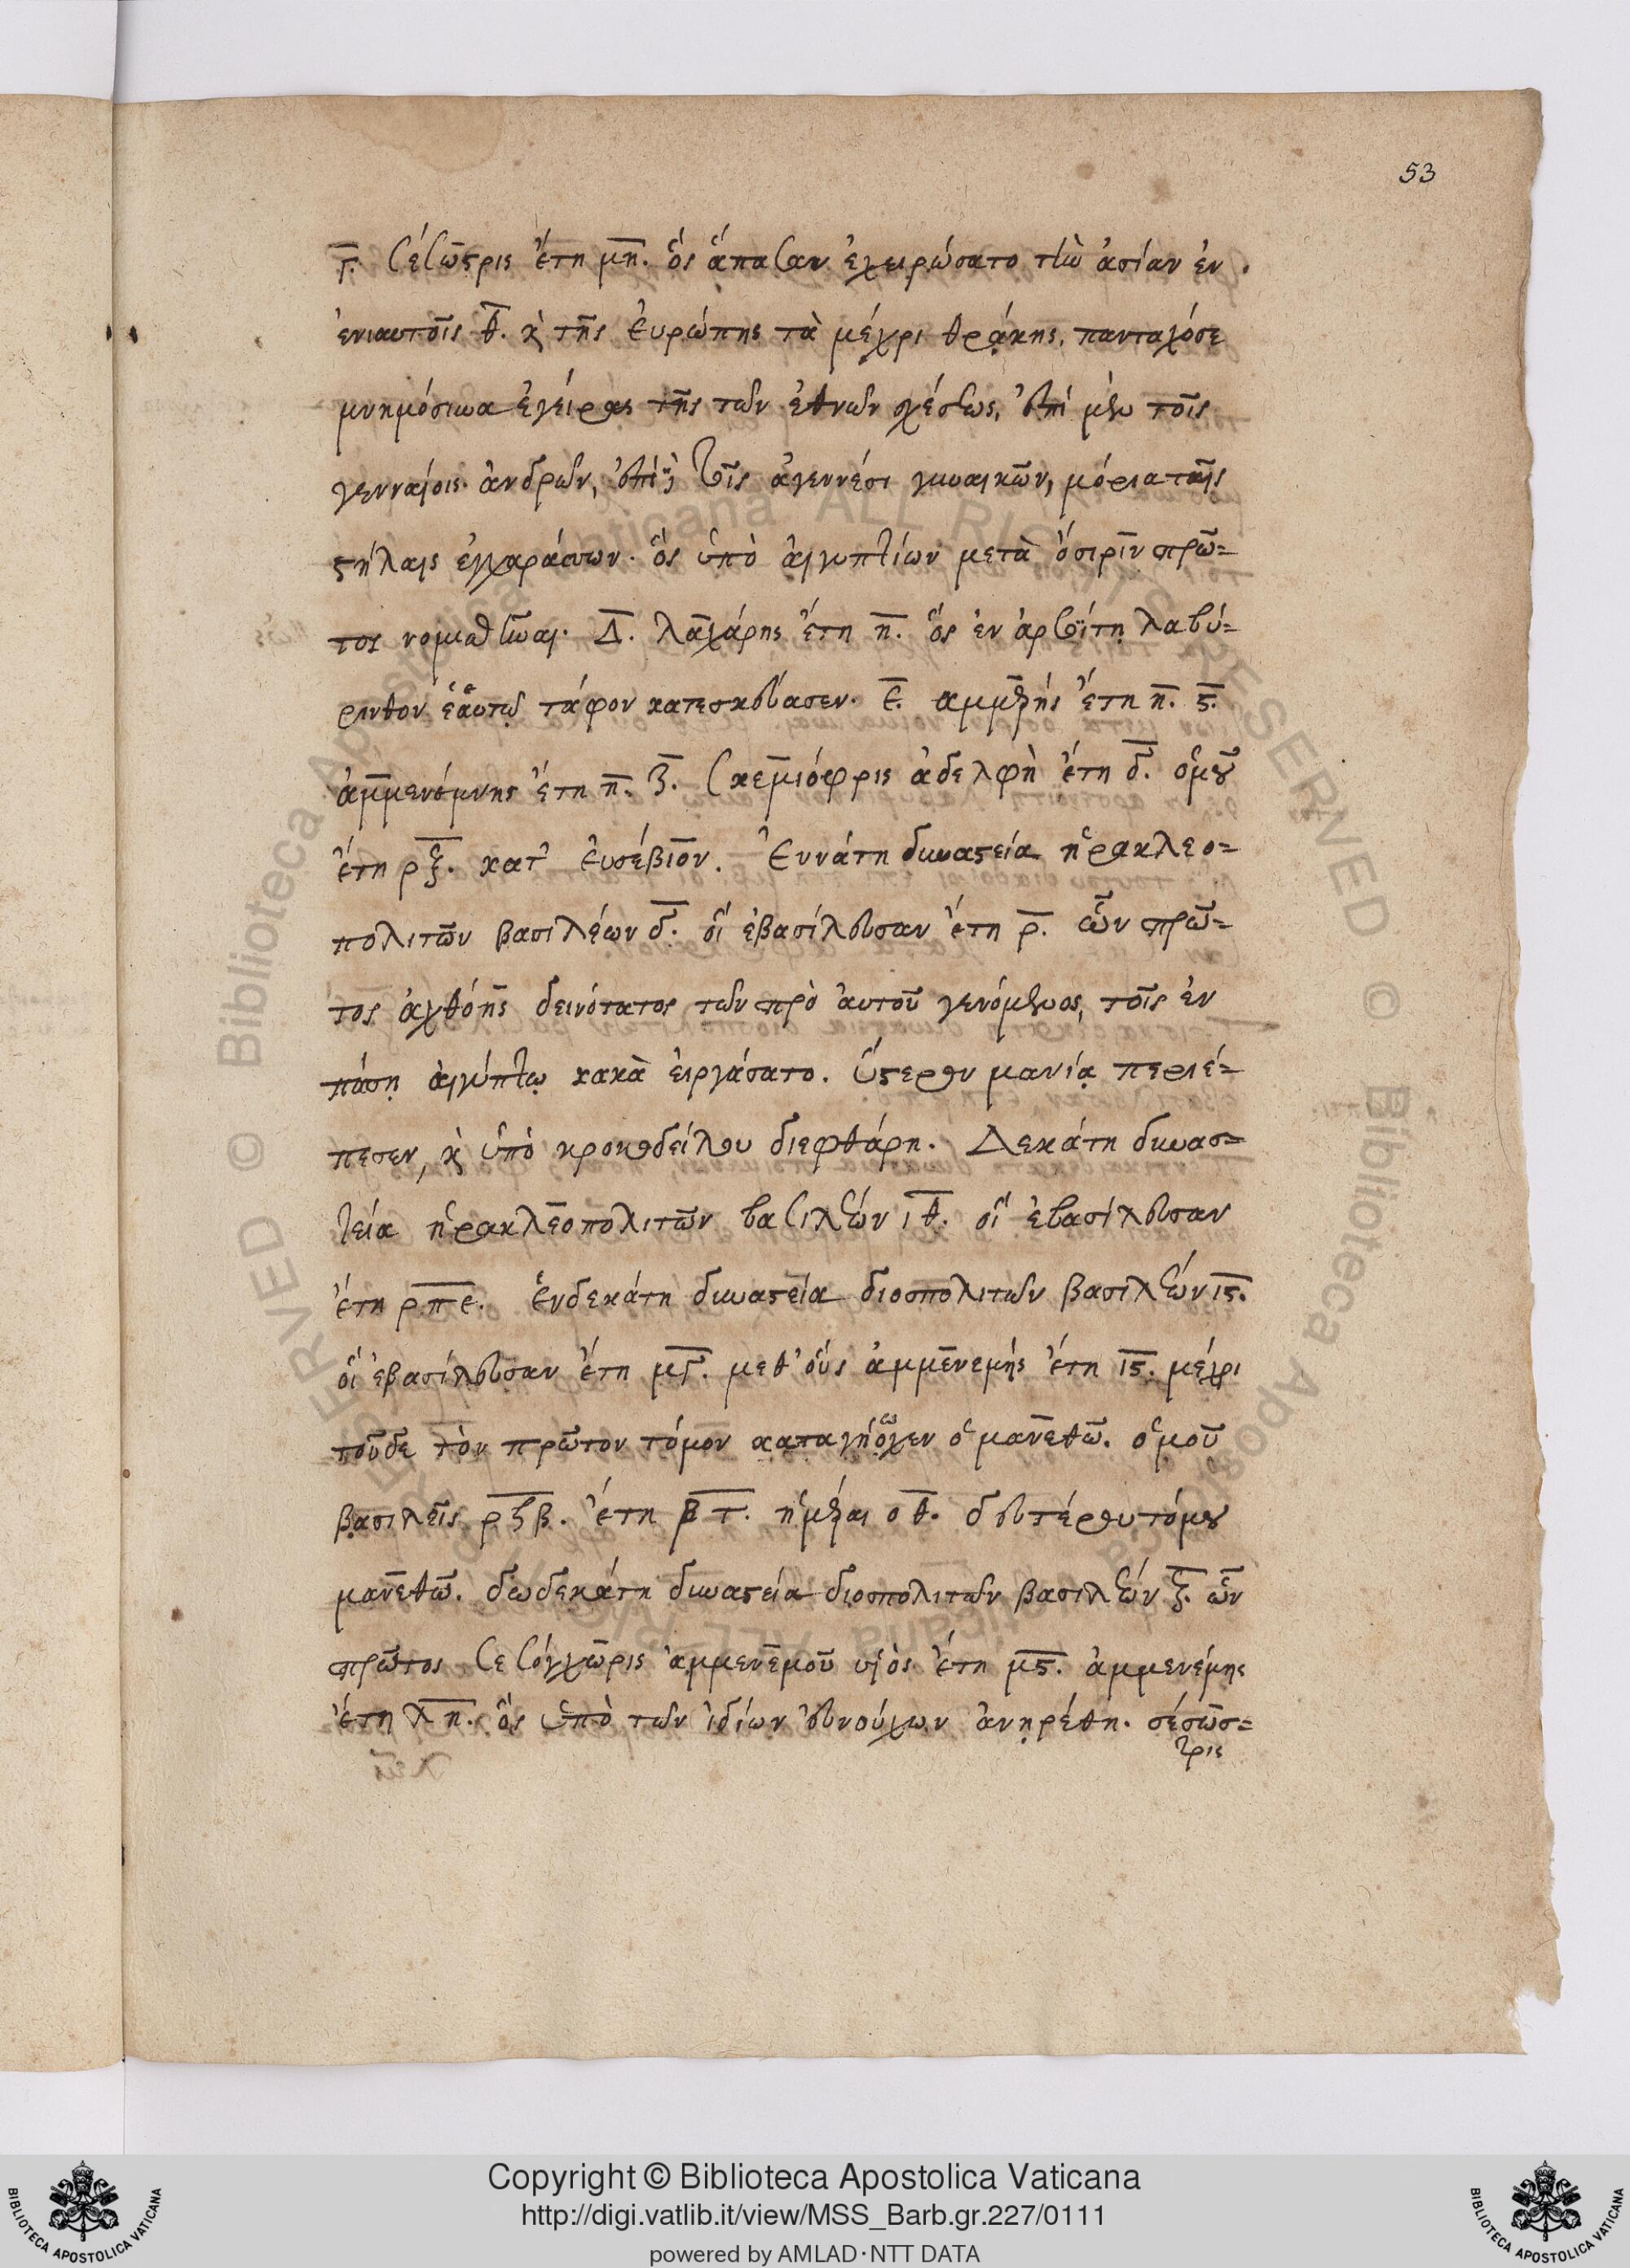 53
Γ. Σέσωστρις ἔτη μη. ὃς ἅπασαν ἐχειρώσατο τὴν ἀσίαν ἐν
ἐνιαυτοῖς θ. κ̀ τῆς ἐυρώπης τὰ μέχρι θρᾴκης, πανταχόσε
μνημόσυνα ἐγείρας τῆς τῶν ἐθνῶν σχέσεως, ἐπὶ μὲν τοῖς
γενναίοις ἀνδρῶν, ἐπὶ δὲ τοῖς ἀγεννέσι γυναικῶν, μόρια ταῖς
στήλαις ἐγχαράσσων. ὃς ὑπὸ ἀιγυπτίων μετὰ ὄσιριν πρῶ=
τος νομισθῆναι. Δ. λαχάρης ἔτη η. ὃς ἐν ἀρσϊοΐτῃ λαβύ=
ρινθον ἑαυτῷ τάφον κατεσκεύασεν. Ε. αμμερής ἔτη η. ς.
ἀμμενέμνης ἔτη η. ζ. Σκεμιόφρις ἀδελφὴ ἔτη δ. ὁμοῦ
ἔτη ρξ. κατ' ἐυσέβιον. Ἐννάτη δυναστεία ἡρακλεο=
πολιτῶν βασιλέων δ. οἳ ἐβασίλευσαν ἔτη ρ. ὧν πρῶ=
τος ἀχθόης δεινότατος τῶν πρὸ ἀυτοῦ γενόμενος, τοῖς ἐν
πάσῃ ἀιγύπτῳ κακὰ ἐιργάσατο. ὕστερον μανίᾳ περιέ=
πεσεν, κ̀ ὑπὸ κροκοδείλου διεφθάρη. Δεκάτη δυνασ=
τεία ἡρακλεοπολιτῶν βασιλεών ιθ. οἳ ἐβασίλευσαν
ἔτη ρπε. ἑνδεκάτη δυναστεία διοσπολιτῶν βασιλεών ις.
οἳ ἐβασίλευσαν ἔτη μγ. μεθ' οὓς ἀμμενεμής ἔτη ις. μέχρι
τοῦδε τὸν πρῶτον τόμον καταγήοχεν ὁ μανεθῶ. ὁμοῦ
βασιλεῖς ρζβ. ἔτη β τ. ἡμέραι οθ. δευτέρου τόμου
μανεθῶ. δωδεκάτη δυναστεία διοσπολιτῶν βασιλεών ζ. ὧν
πρῶτος Σεσόγχωρις ἀμμενεμοῦ υἱὸς ἔτη μς. ἀμμενέμης
ἔτη λη. ὃς ὑπὸ τῶν ἰδίων ἐυνούχων ἀνῃρέθη. σέσωσ=
τρις
Copyright © Biblioteca Apostolica Vaticana
http://digi.vatlib.it/view/MSS_Barb.gr.227/0111
powered by AMLAD·NTT DATA
BIBLIOTECA APOSTOLICA VATICANA
BIBLIOTECA APOSTOLICA VATICANA